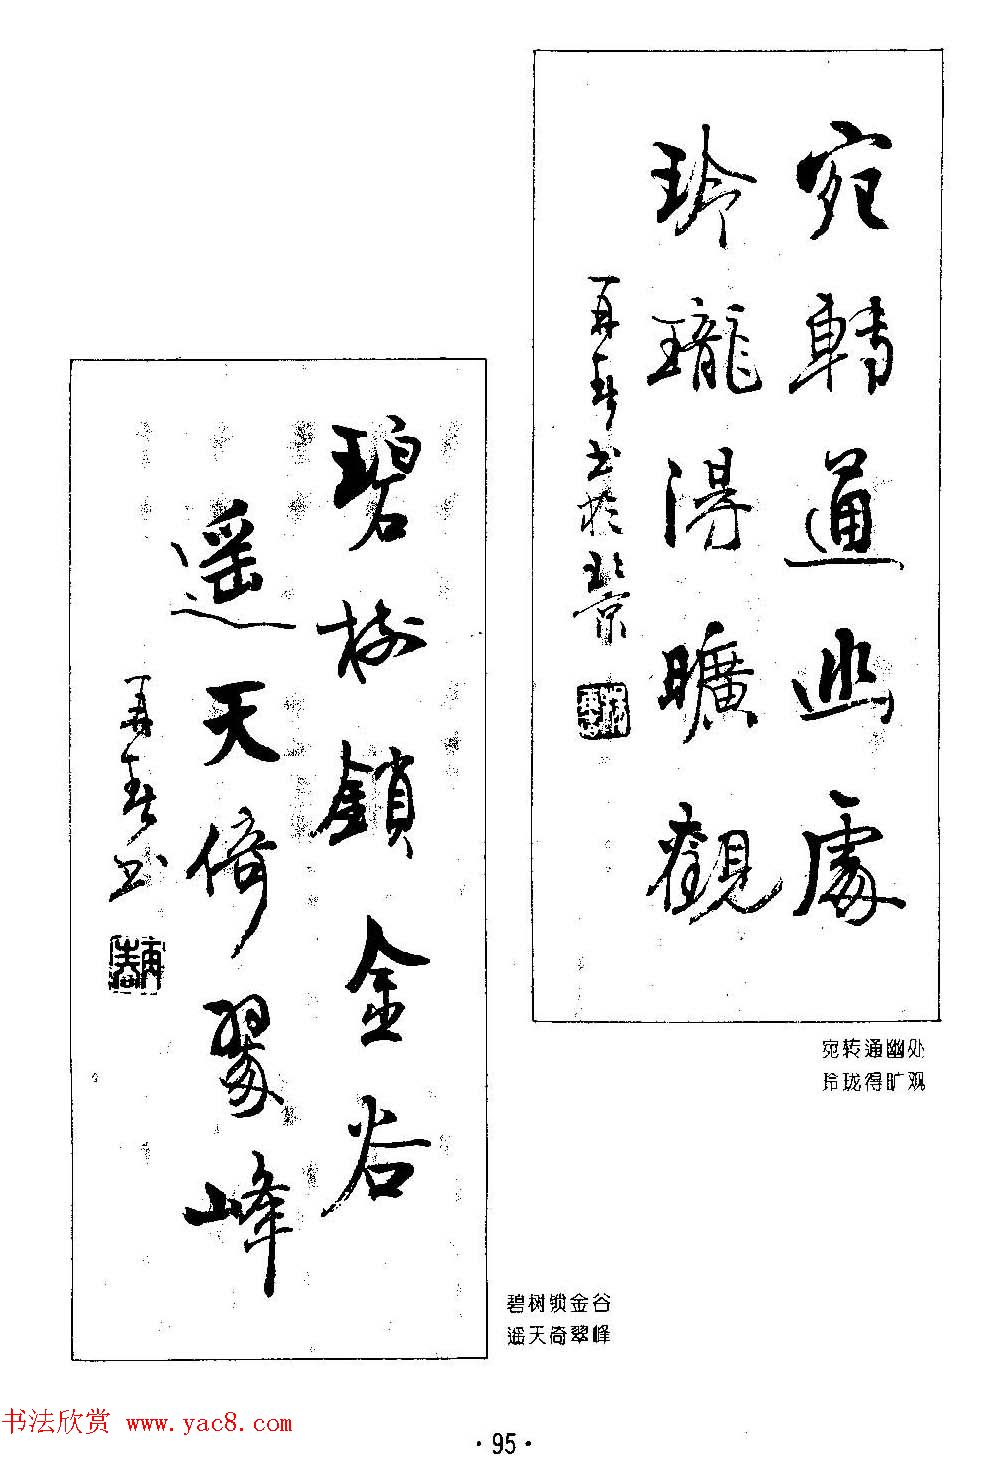 宛轉通幽處
玲瓏得曠觀
再春书於北京
宛转通幽处
玲珑得旷观
碧樹鎖金谷
遥天倚翠峰
再春书
碧树锁金谷
遥天奇翠峰
书法欣赏 www.yac8.com
·95·